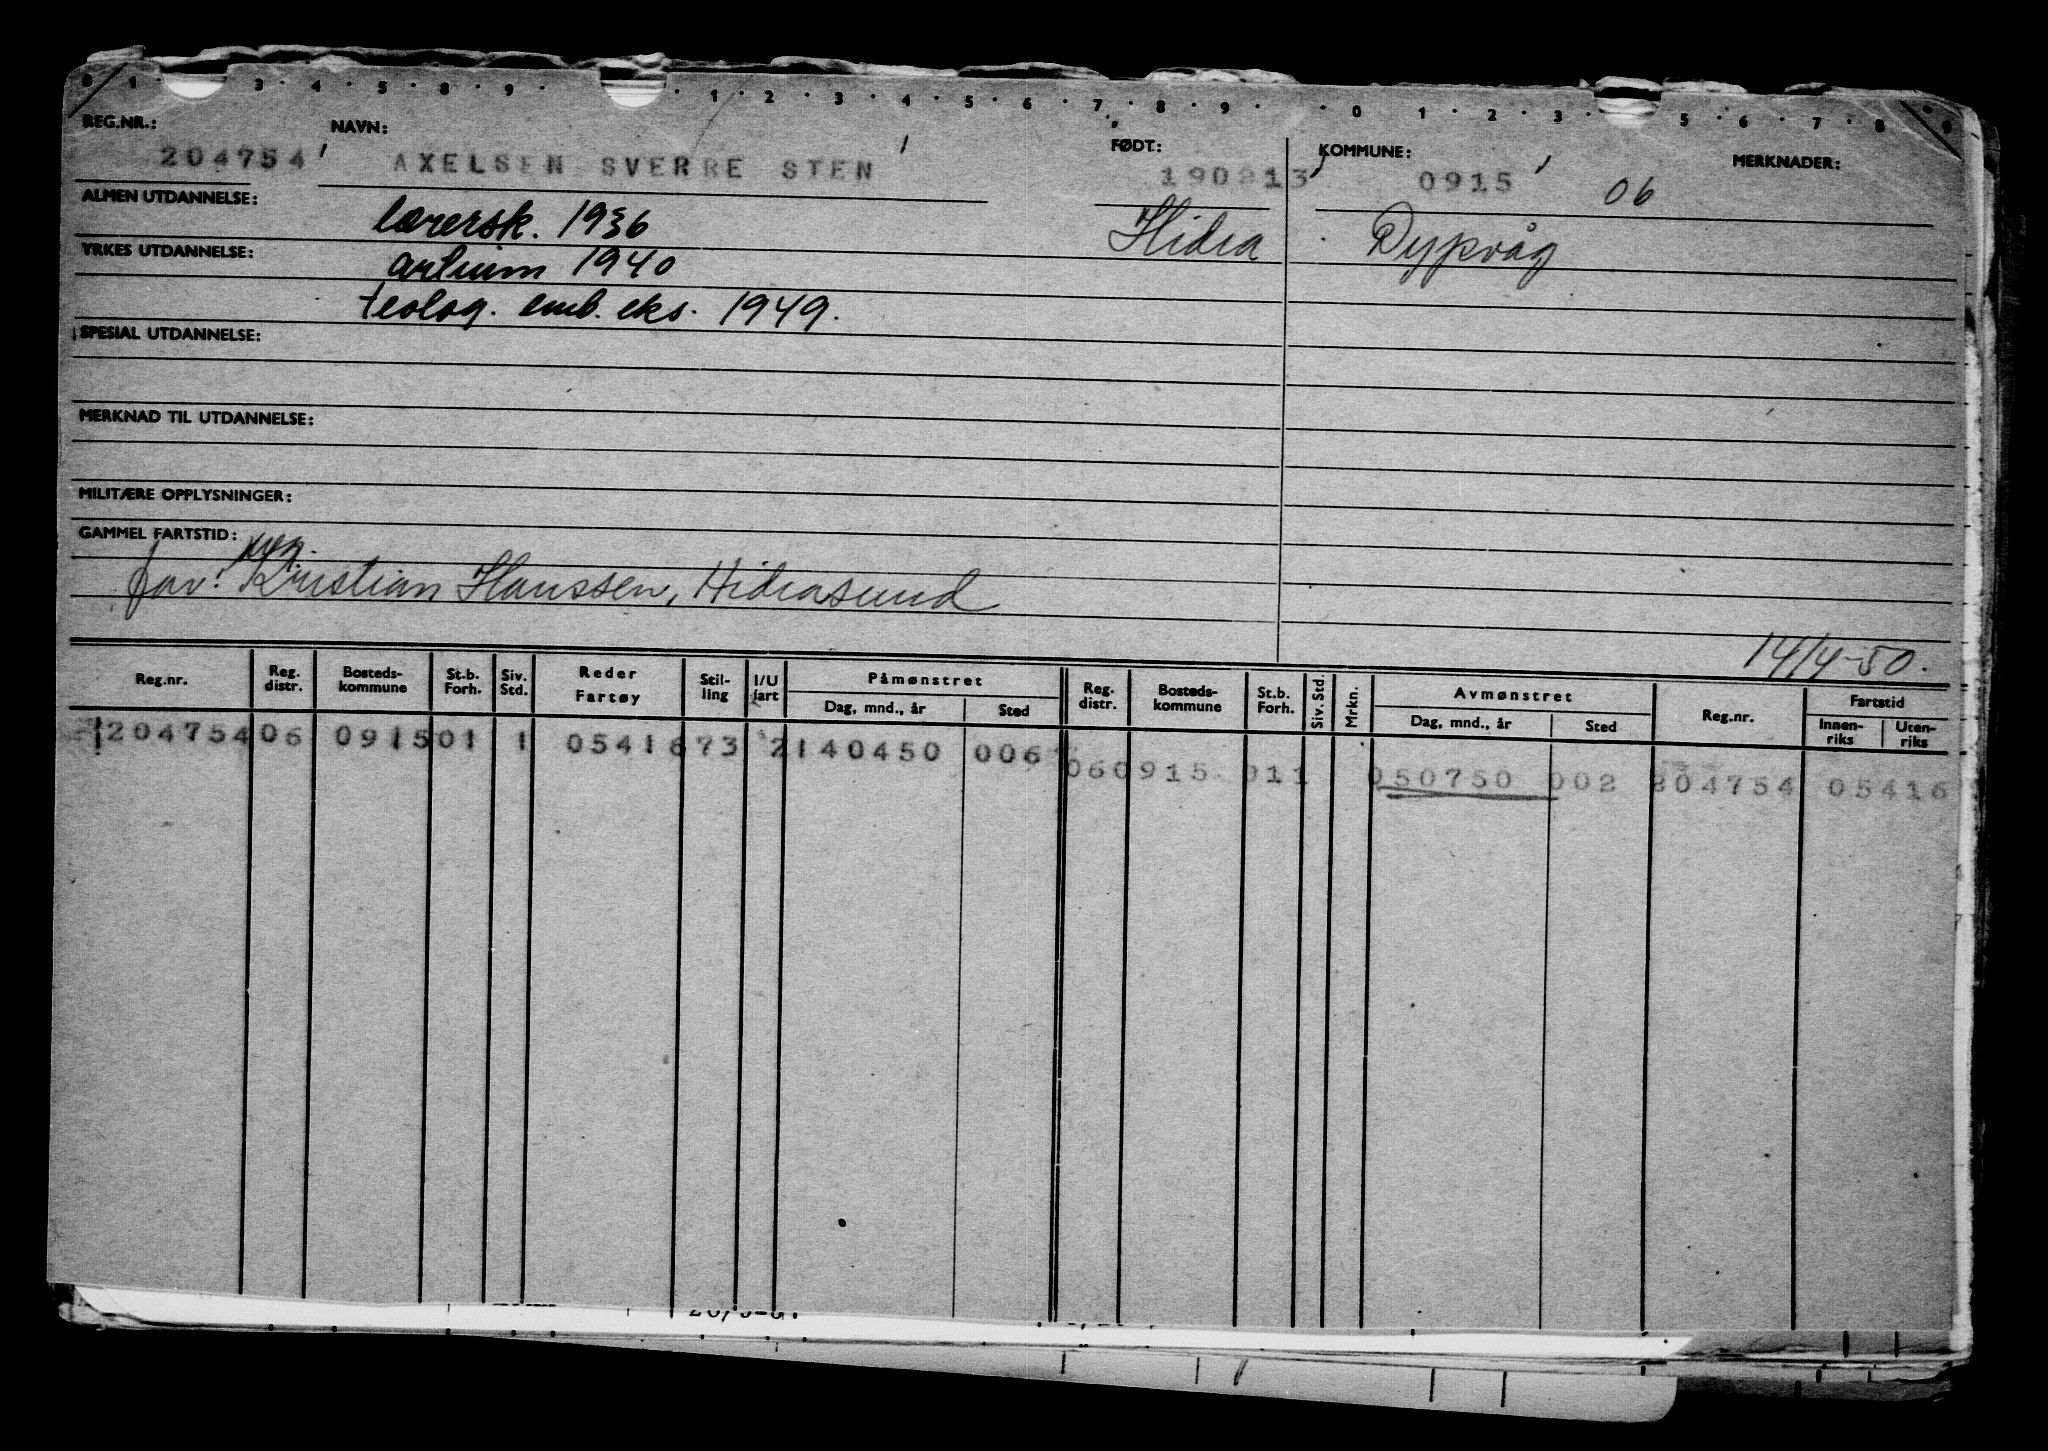 0 · 1 · 3 · 4 · 5 · 8 · 9 · · 1 · 2 · 3 · 4 · 5 · 6 · 7 · 8 · 9 · · 0 · 1 · 2 · 3 · 5 · 6 · 7 · 8 · 9
REG.NR.: NAVN: FØDT: KOMMUNE: MERKNADER:
204754 AXELSEN SVERRE STEN 190213 0915 06
ALMEN UTDANNELSE: lærersk. 1936 Hidra Dypvåg
YRKES UTDANNELSE: artium 1940
teolog. emb. eks. 1949.
SPESIAL UTDANNELSE:
MERKNAD TIL UTDANNELSE:
MILITÆRE OPPLYSNINGER:
GAMMEL FARTSTID:
far: Kristian Hanssen, Hidrasund
14/4-50.
Reg.nr. Reg. distr. Bosteds-kommune St.b. Forh. Siv. Std. Reder Fartøy Stil-ling I/U fart Påmønstret Dag, mnd., år Sted Reg. distr. Bosteds-kommune St.b. Forh. Siv. Std. Mrkn. Avmønstret Dag, mnd., år Sted Reg.nr. Fartstid Innen-riks Uten-riks
204754 06 0915 01 1 05416 73 2 140450 006
06 0915 01 1 050750 002 204754 05416